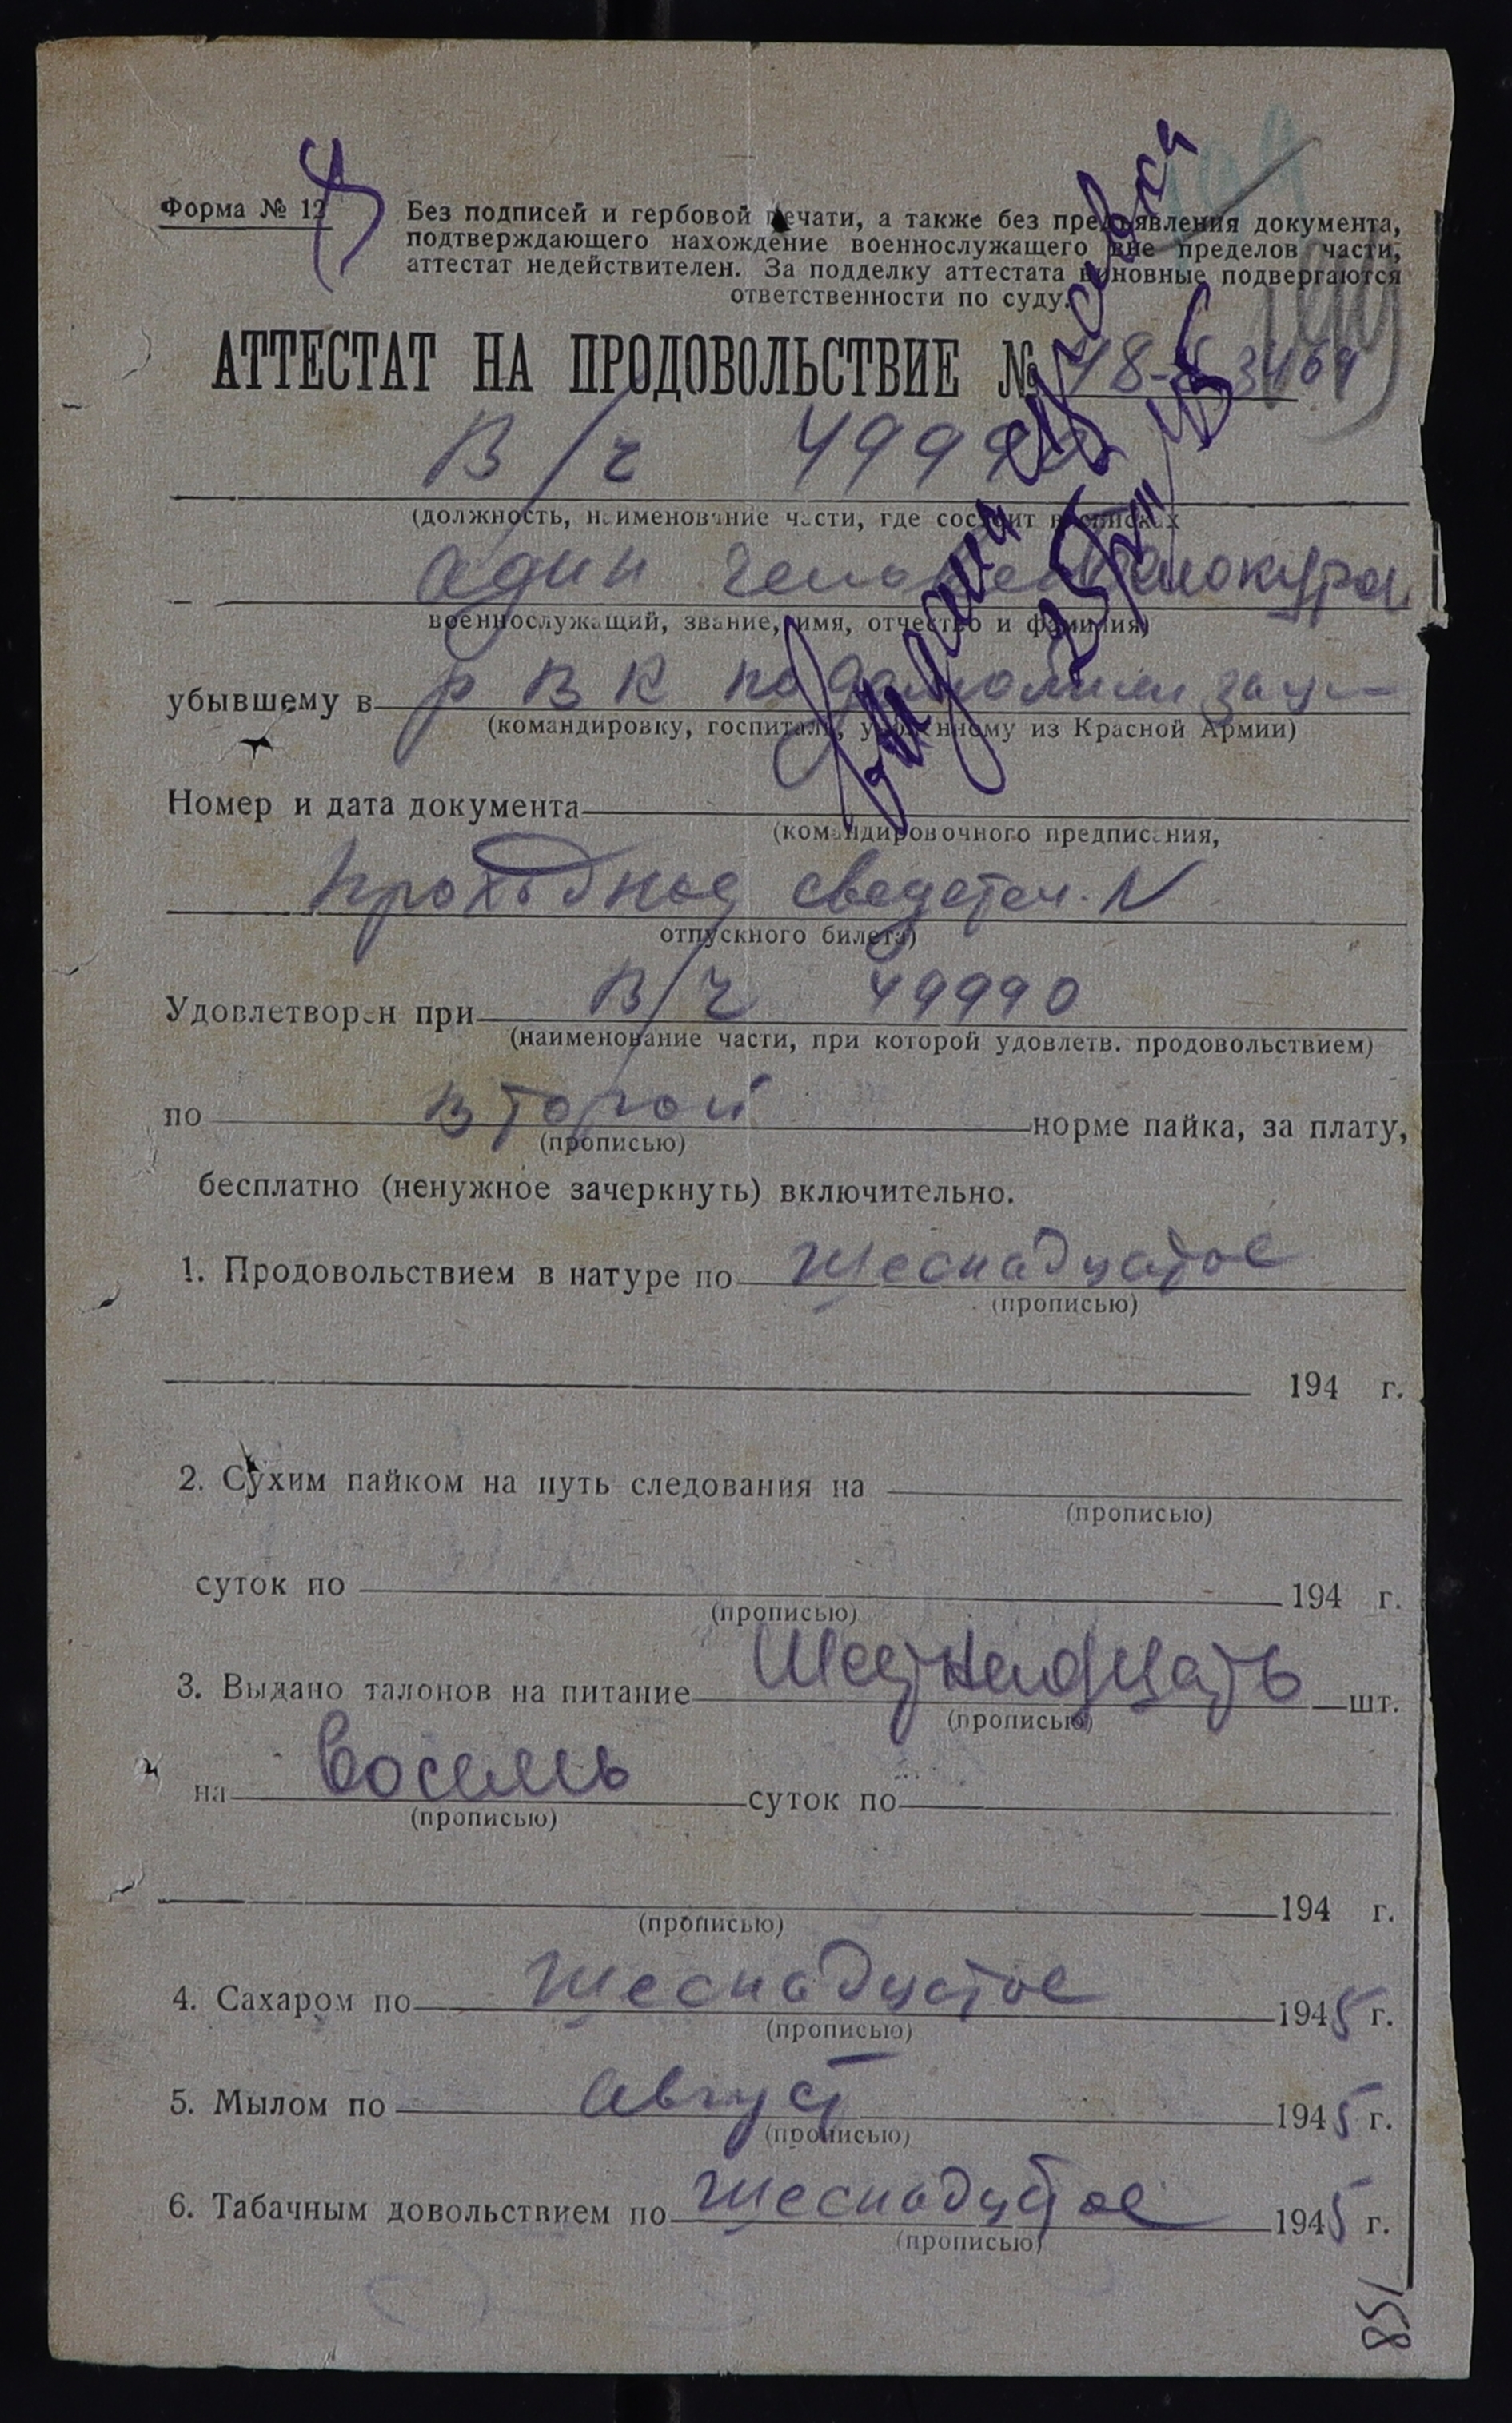 Форма № 12
Без подписей и гербовой печати, а также без предъявления документа,
подтверждающего нахождение военнослужащего вне пределов части,
аттестат недействителен. За подделку аттестата виновные подвергаются
ответственности по суду.
АТТЕСТАТ НА ПРОДОВОЛЬСТВИЕ №
В/ч 49990
(должность, наименование части, где состоит в списках
один
военнослужащий, звание, имя, отчество и фамилия)
убывшему в РВК по
(командировку, госпиталь, уволенному из Красной Армии)
Номер и дата документа
(командировочного предписания,
проходное свидетел. N
отпускного билета)
Удовлетворен при В/ч 49990
(наименование части, при которой удовлетв. продовольствием)
по второй норме пайка, за плату,
(прописью)
бесплатно (ненужное зачеркнуть) включительно.
1. Продовольствием в натуре по шеснадцатое
(прописью)
194 г.
2. Сухим пайком на путь следования на
(прописью)
суток по 194 г.
(прописью)
3. Выдано талонов на питание Шестнадцать шт.
(прописью)
на восемь суток по
(прописью)
194 г.
(прописью)
4. Сахаром по шеснадцатое 1945 г.
(прописью)
5. Мылом по август 1945 г.
(прописью)
6. Табачным довольствием по шеснадцатое 1945 г.
(прописью)
158